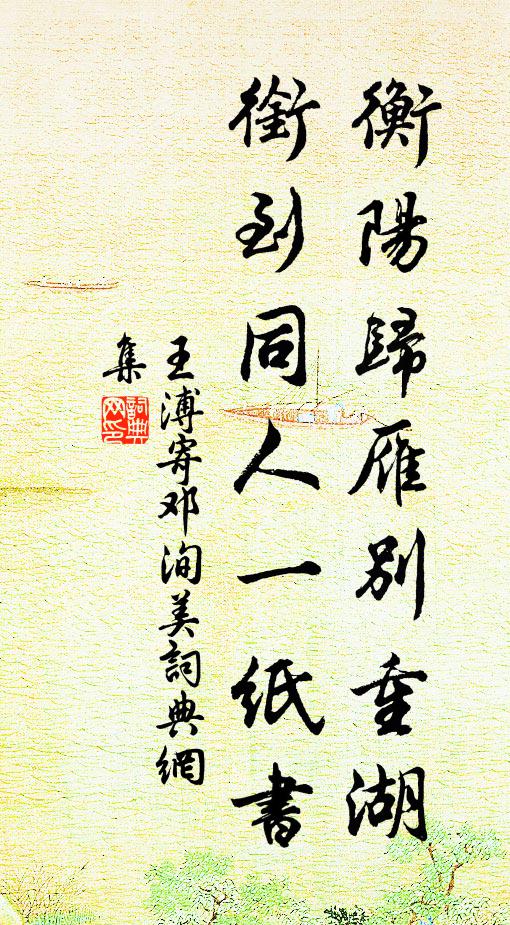 衡陽歸雁別重湖
銜到同人一紙書
王溥寄邓洵美詞典網
集
詞典
网印